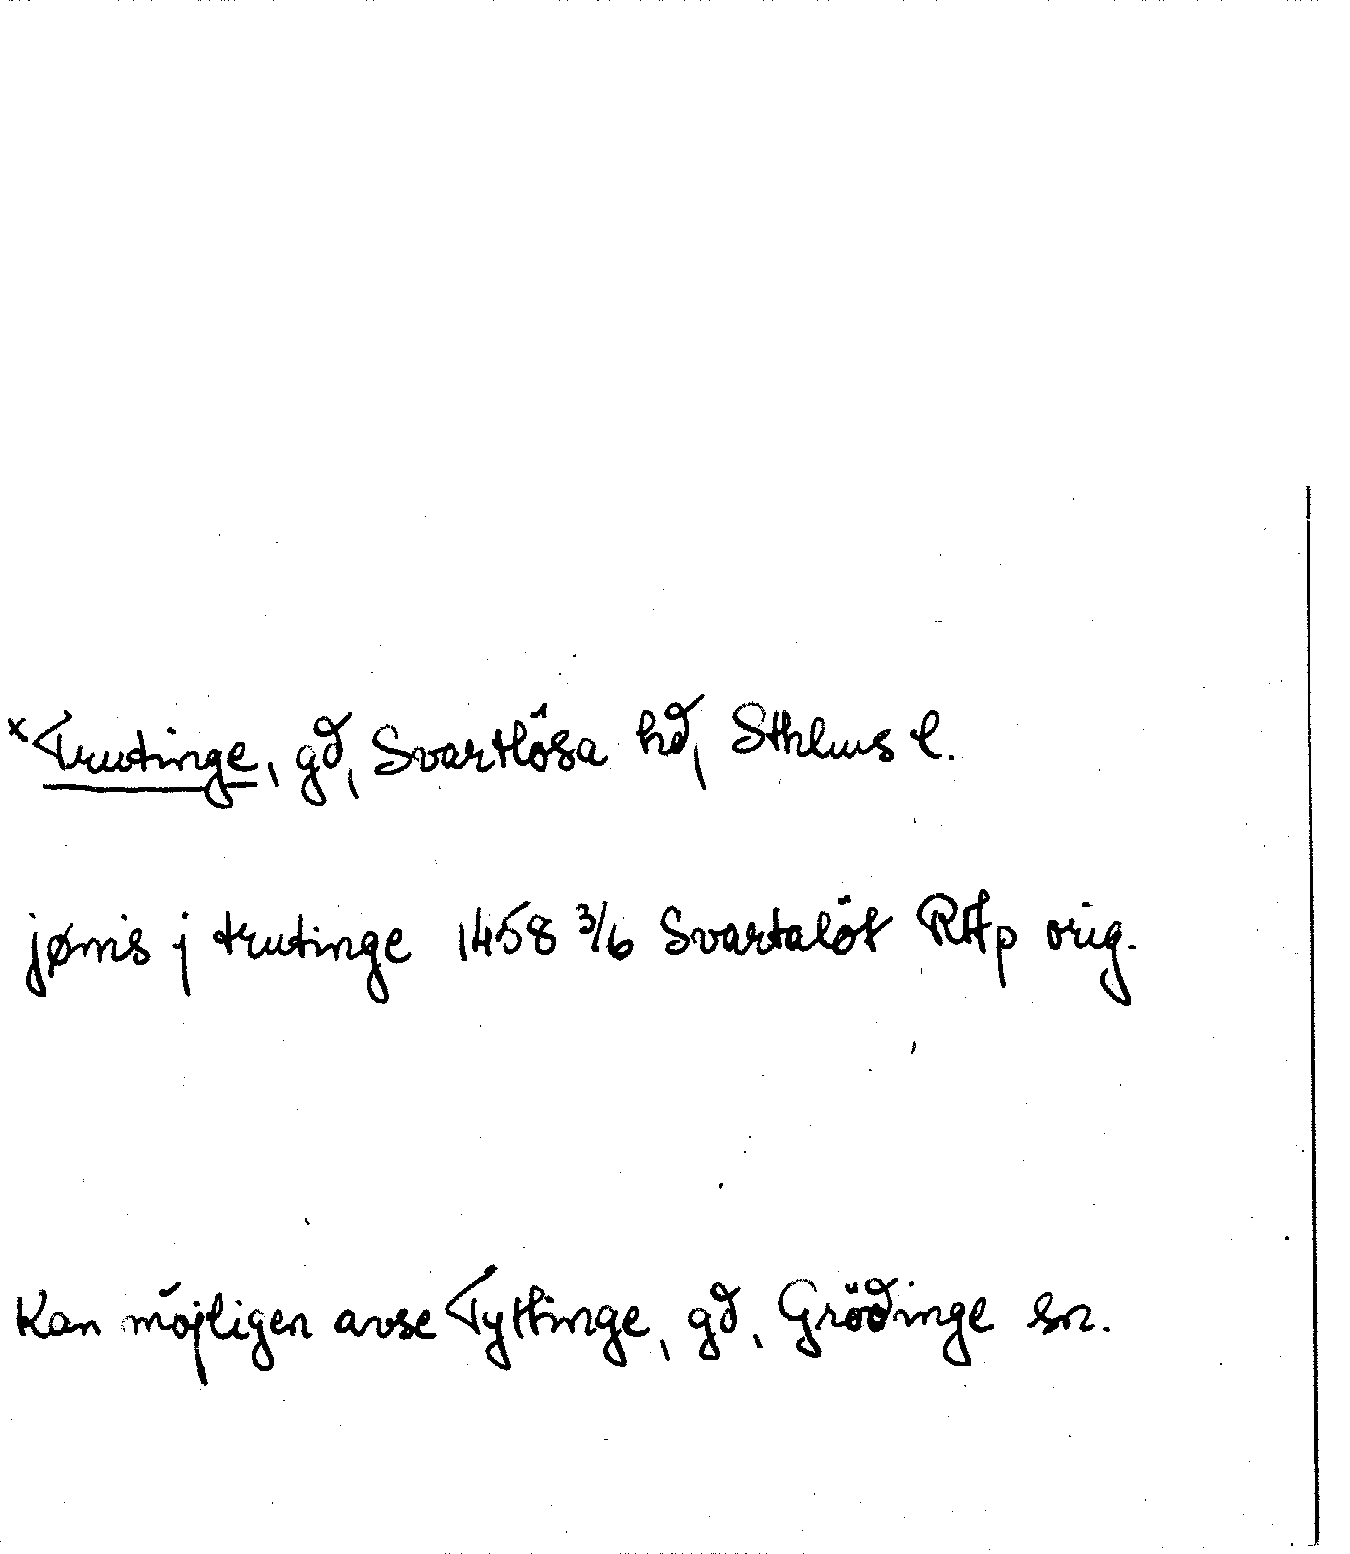 x Trutinge, gd, Svartlösa hd, Sthlms l.
jønis j trutinge 1458 3/6 Svartalöt RAp orig.
Kan möjligen avse Tyttinge, gd, Grödinge sn.